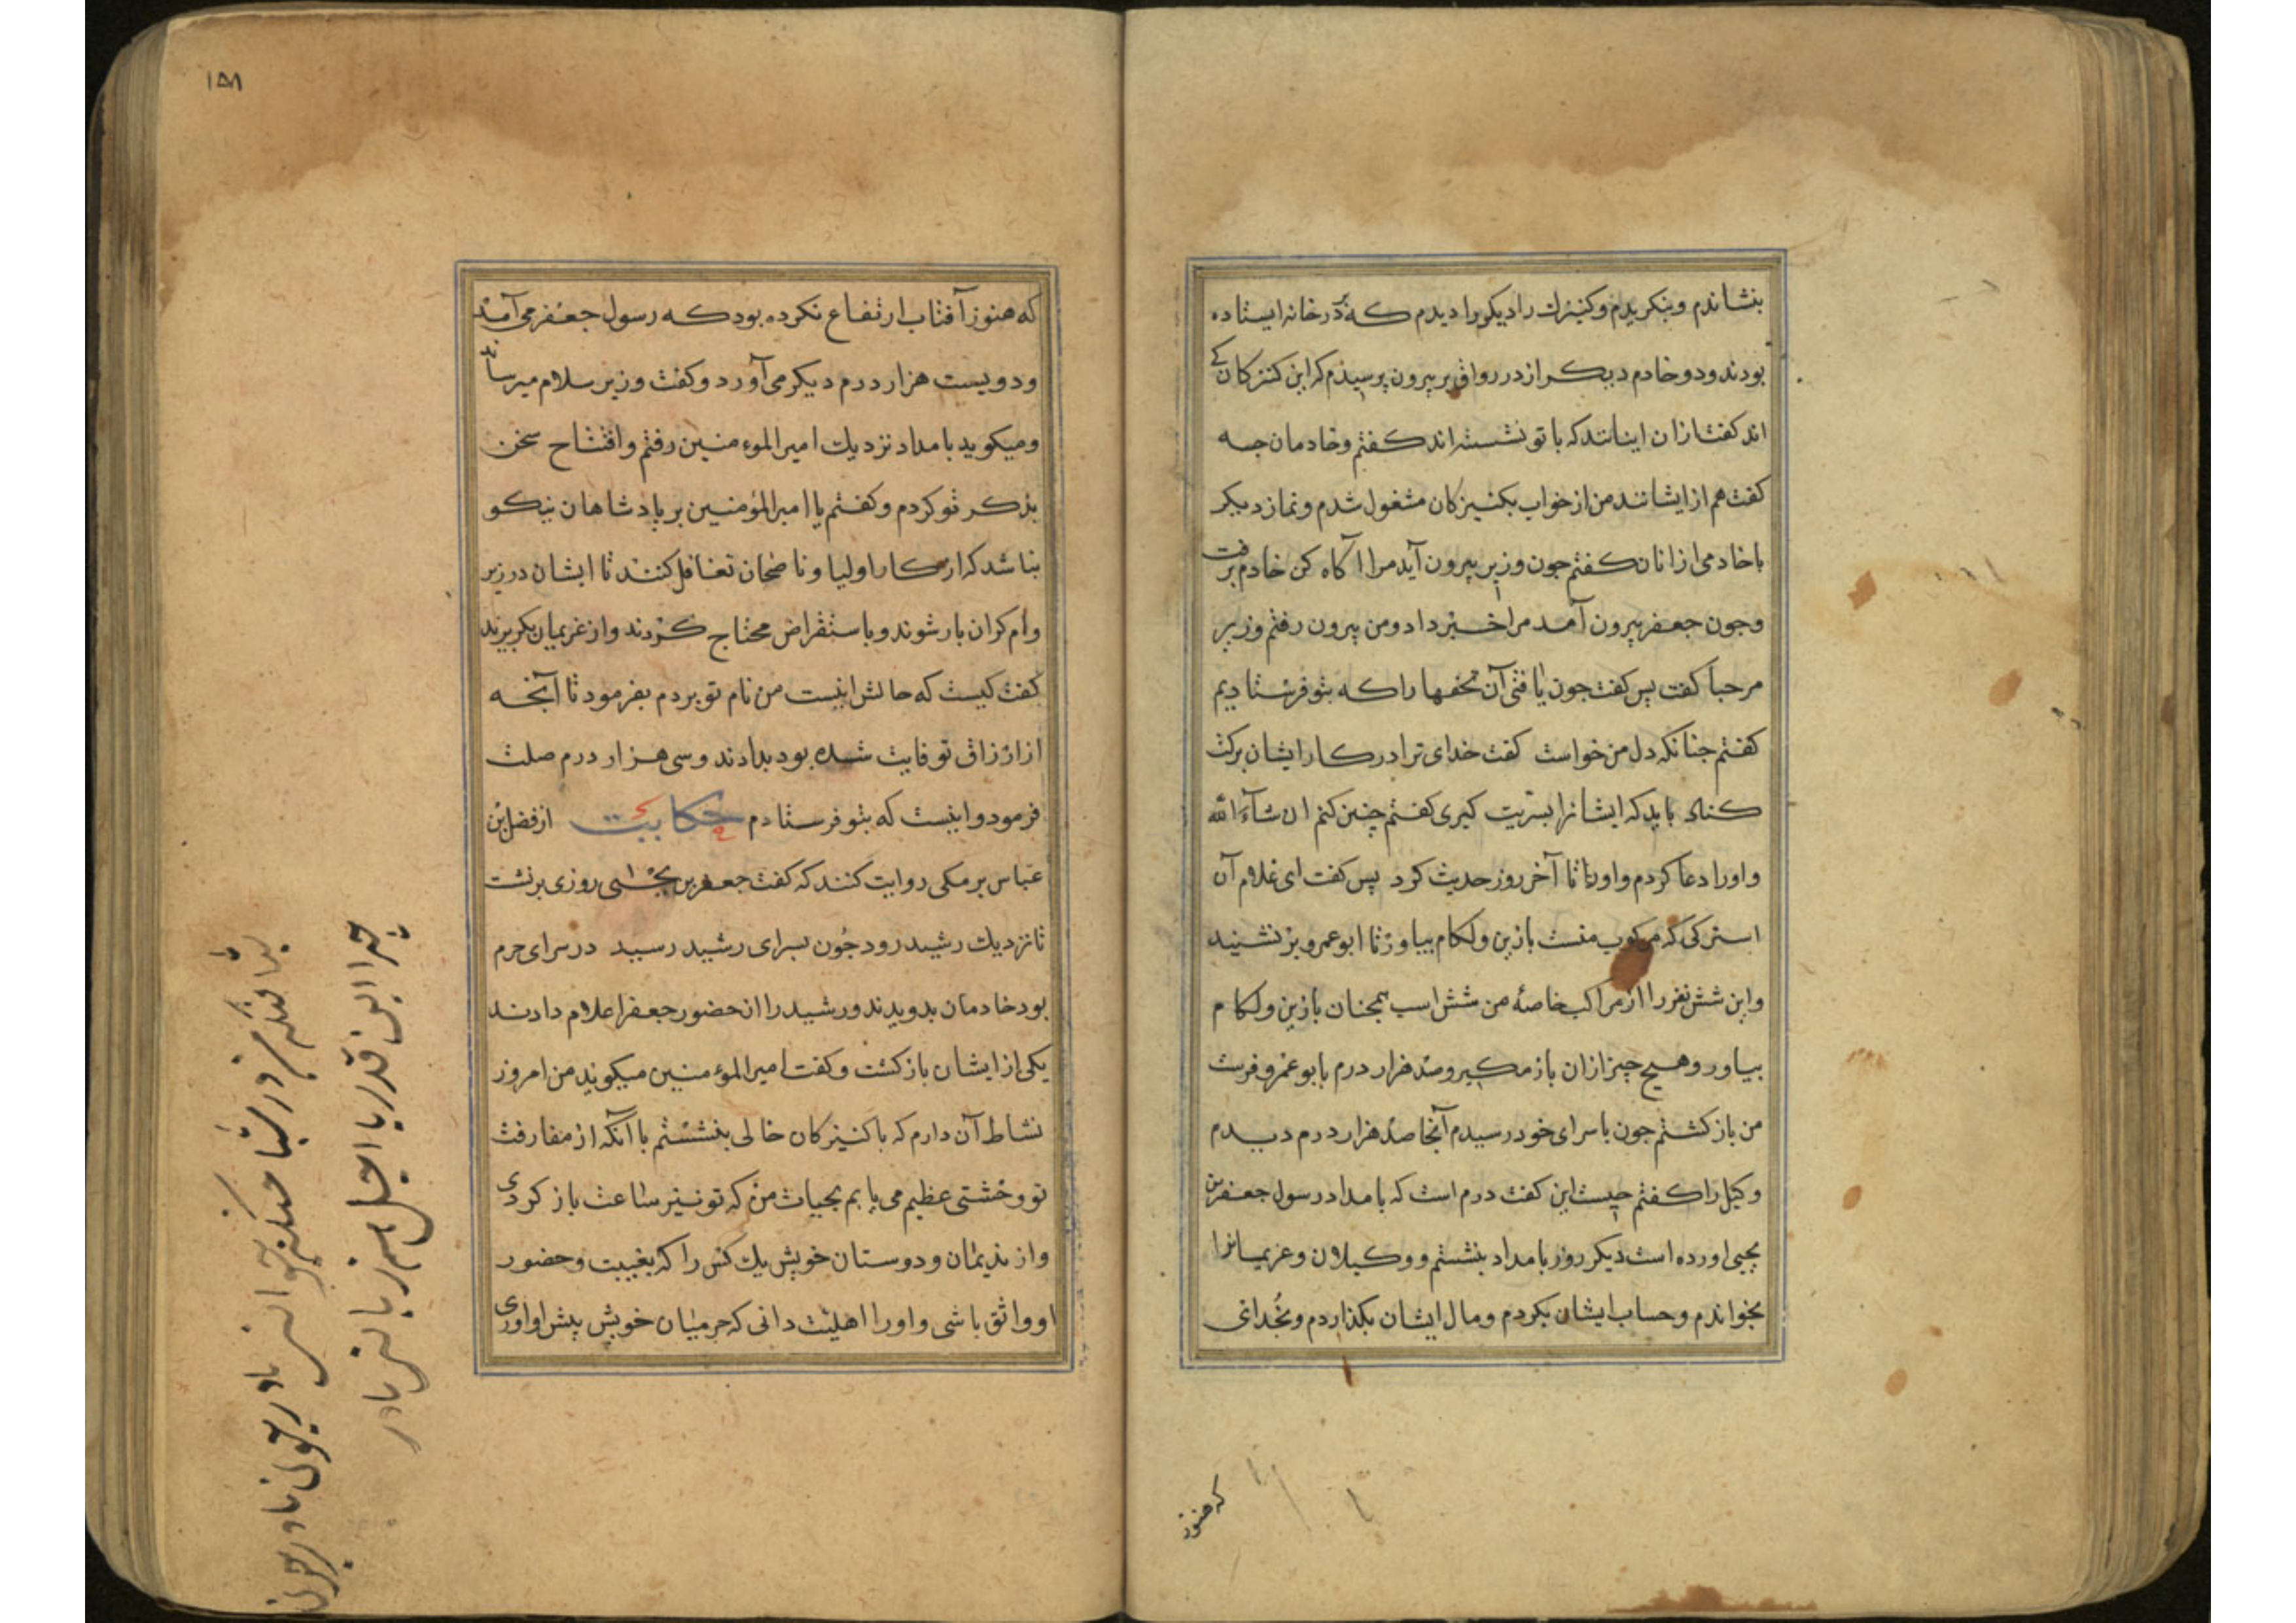 بنشاندم وبنکریدم وکنیزك را دیکر را دیدم که در خانه ایستاده
بودند ودو خادم دیکر از در رواق بر بیرون پرسیدم که این کنزکان کے
اند کفت از ان اینانند که با تو نشسته اند کفتم وخادمان جه
کفت هم از ایشانند من از خواب بکنیزکان مشغول شدم ونماز دیکر
با خادمی از انان کفتم جون وزیر بیرون آید مرا آکاه کن خادم برفت
وجون جعفر بیرون آمد مرا خبر داد ومن بیرون رفتم وزیر
مرحبا کفت پس کفت جون یافتی آن تحفها را که بتو فرستادیم
کفتم جنانکه دل من خواست کفت خدای ترا در کار ایشان برکت
کناد باید که ایشانرا بسریت کیری کفتم چنین کنم ان شآء الله
واورا دعا کردم واو با ما تا آخر روز حدیث کرد پس کفت ای غلام آن
استرکی که مرکوب منست با زین ولکام بیاور تا ابو عمرو بر نشیند
واین شش نفر را از مراکب خاصهٔ من شش اسب همجنان با زین ولکام
بیاور وهیچ چیز ازان باز مکیر وصد هزار درم بابو عمرو فرست
من باز کشتم جون با سرای خود رسیدم آنجا صد هزار درم دیدم
وکیل را کفتم چیست این کفت درم است که بامداد رسول جعفر بن
یحیی اورده است دیکر روز بامداد بنشستم ووکیلان وغریمانرا
بخواندم وحساب ایشان بکردم ومال ایشان بکذاردم وبخدای
که هنوز
١٥٨
که هنوز آفتاب ارتفاع نکرده بود که رسول جعفر می آمد
ودویست هزار درم دیکر می آورد وکفت وزیر سلام میرساند
ومیکوید بامداد نزدیك امیر المؤمنین رفتم وافتتاح سخن
بذکر تو کردم وکفتم یا امیر المؤمنین بر پادشاهان نیکو
بناشد که از کار اولیا وناصحان تغافل کنند تا ایشان در زیر
وام کران بار شوند وباستقراض محتاج کردند واز غریمان بکریزند
کفت کیست که حالش اینست من نام تو بردم بفرمود تا آنجه
از ارزاق تو فایت شده بود بدادند وسی هزار درم صلت
فرمود واینست که بتو فرستادم حکایت از فضل بن
عباس برمکی روایت کنند که کفت جعفر بن یحیی روزی برنشت
تا نزدیك رشید رود جون بسرای رشید رسید در سرای حرم
بود خادمان بدویدند ورشید را از حضور جعفر اعلام دادند
یکی از ایشان باز کشت وکفت امیر المؤمنین میکوید من امروز
نشاط آن دارم که با کنیزکان خالی بنشستم با آنکه از مفارقت
تو وحشتی عظیم می یابم بحیات من که تو نیز ساعت باز کردی
واز ندیمان ودوستان خویش یك کس را که بغیبت وحضور
او واثق باشی واورا اهلیت دانی که حرمیان خویش پیش او اوری
چرا این قدر با اجل